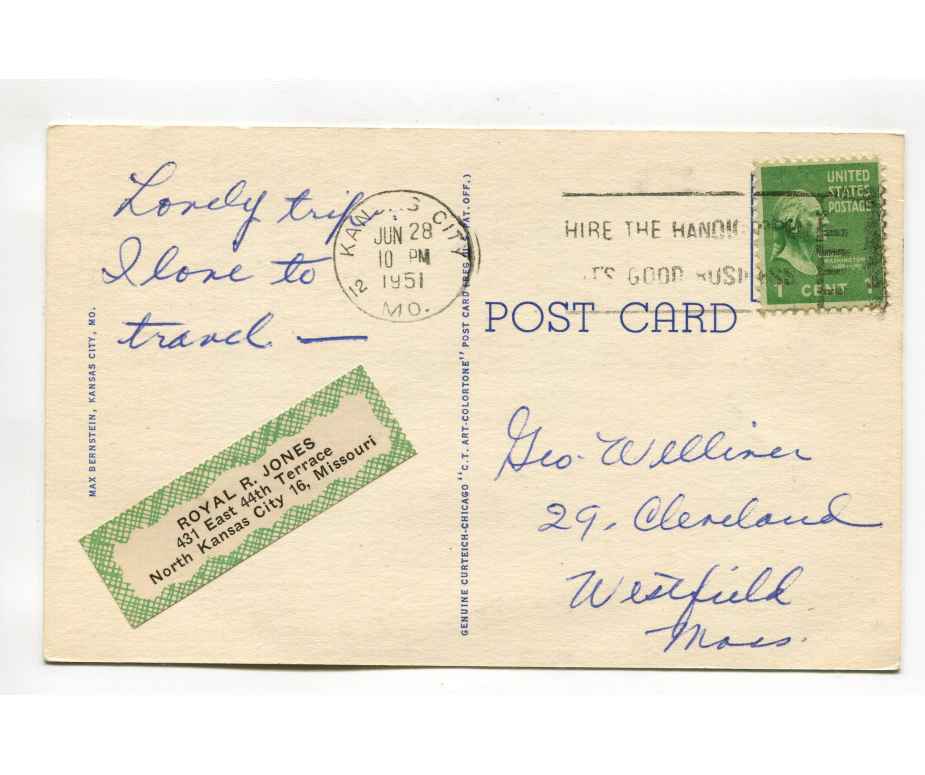 Lovely trip.
I love to
travel —
MAX BERNSTEIN, KANSAS CITY, MO.
ROYAL R. JONES
431 East 44th Terrace
North Kansas City 16, Missouri
KANSAS CITY
JUN 28
10 PM
1951
12
MO.
GENUINE CURTEICH-CHICAGO "C.T. ART-COLORTONE" POST CARD (REG. U.S. PAT. OFF.)
HIRE THE
IT'S GOOD BUSINESS
UNITED
STATES
POSTAGE
WASHINGTON
1 CENT 1
POST CARD
Geo.
29, Cleveland
Westfield
Mass.